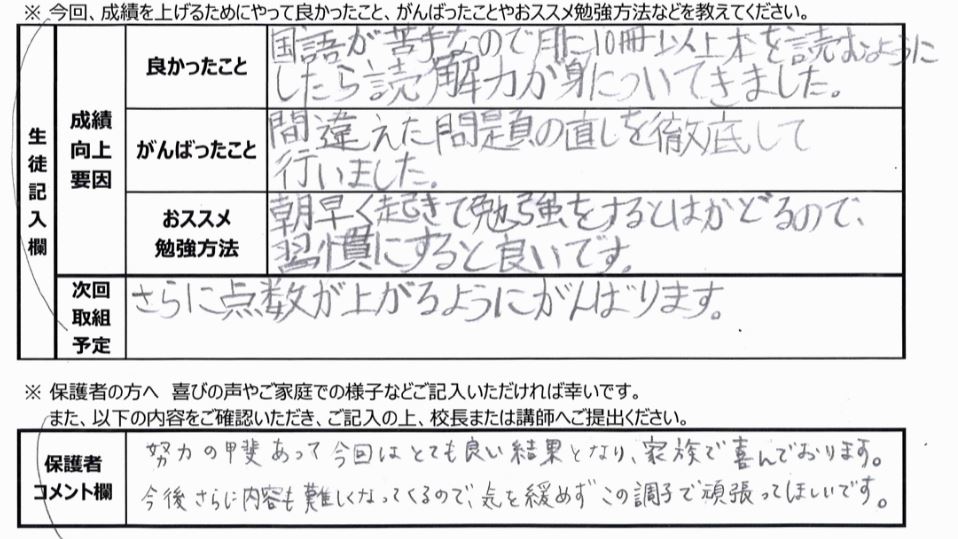 ※ 今回、成績を上げるためにやって良かったこと、がんばったことやおススメ勉強方法などを教えてください。
生徒記入欄
成績
向上
要因
良かったこと
国語が苦手なので月に10冊以上本を読むように
したら読解力が身についてきました。
がんばったこと
間違えた問題の直しを徹底して
行いました。
おススメ
勉強方法
朝早く起きて勉強をするとはかどるので、
習慣にすると良いです。
次回
取組
予定
さらに点数が上がるようにがんばります。
※ 保護者の方へ 喜びの声やご家庭での様子などご記入いただければ幸いです。
また、以下の内容をご確認いただき、ご記入の上、校長または講師へご提出ください。
保護者
コメント欄
努力の甲斐あって今回はとても良い結果となり、家族で喜んでおります。
今後さらに内容も難しくなってくるので、気を緩めずこの調子で頑張ってほしいです。